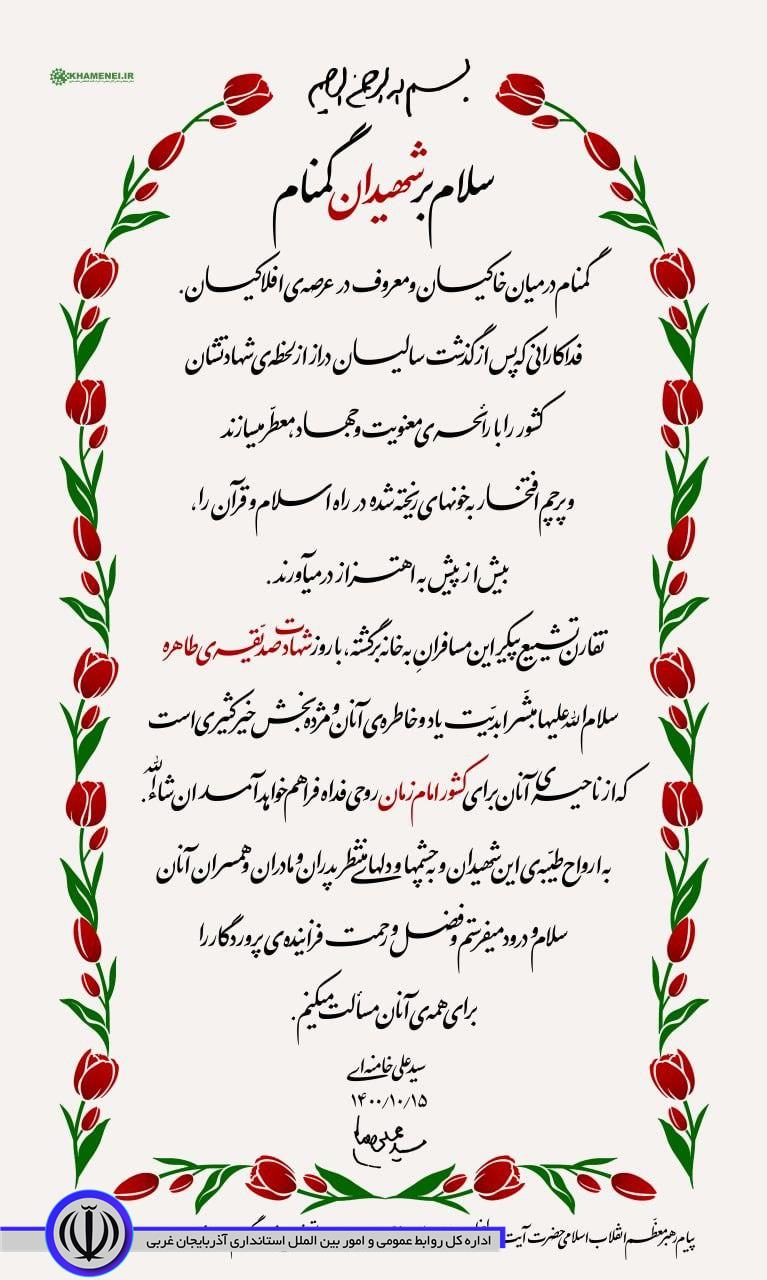 KHAMENEI.IR
بسم الله الرحمن الرحیم
سلام بر شهیدان گمنام
گمنام در میان خاکیان و معروف در عرصه‌ی افلاکیان.
فداکارانی که پس از گذشت سالیان دراز از لحظه‌ی شهادتشان
کشور را با رائحه‌ی معنویت و جهاد، معطّر میسازند
و پرچم افتخار به خونهای ریخته شده در راه اسلام و قرآن را،
بیش از پیش به اهتزاز درمیآورند.
تقارن تشییع پیکر این مسافرانِ به خانه برگشته، با روز شهادت صدّیقه‌ی طاهره
سلام‌الله‌علیها مبشّر ابدیّت یاد و خاطره‌ی آنان و مژده‌بخش خیر کثیری است
که از ناحیه‌ی آنان برای کشور امام زمان روحی فداه فراهم خواهد آمد ان شاءالله.
به ارواح طیّبه‌ی این شهیدان و به چشمها و دلهای منتظر پدران و مادران و همسران آنان
سلام و درود میفرستم و فضل و رحمت فزاینده‌ی پروردگار را
برای همه‌ی آنان مسألت میکنم.
سیدعلی خامنه‌ای
۱۴۰۰/۱۰/۱۵
پیام رهبر معظّم انقلاب اسلامی حضرت آیت
اداره کل روابط عمومی و امور بین الملل استانداری آذربایجان غربی